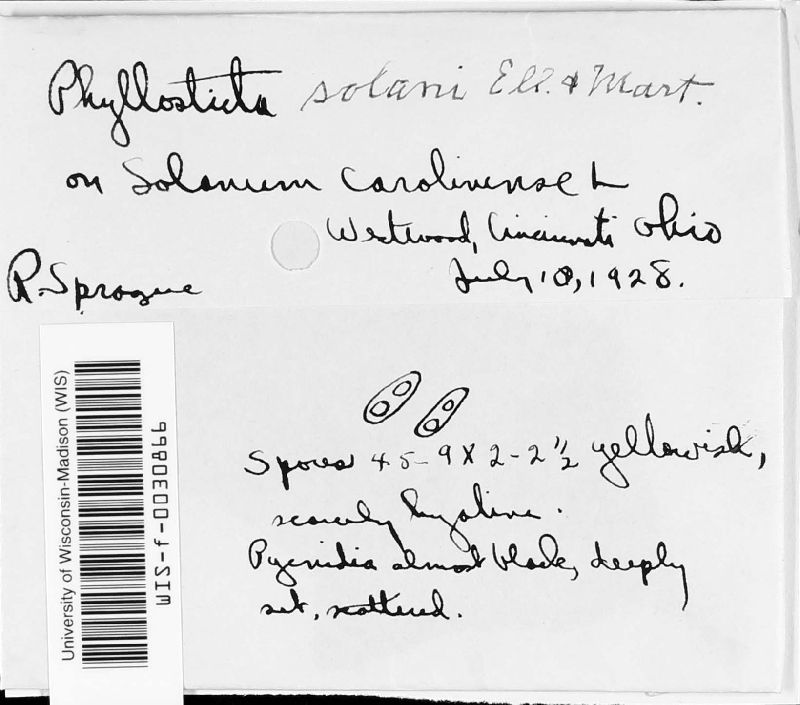 Phyllosticta solani Ell. & Mart.
on Solanum carolinense L
Westwood, Cincinnati Ohio
July 10, 1928.
R. Sprague
Spores 4 5-9 X 2-2 1/2 yellowish,
scarcely hyaline.
Pycnidia almost black, deeply
set, scattered.
University of Wisconsin-Madison (WIS)
WIS-f-0030866